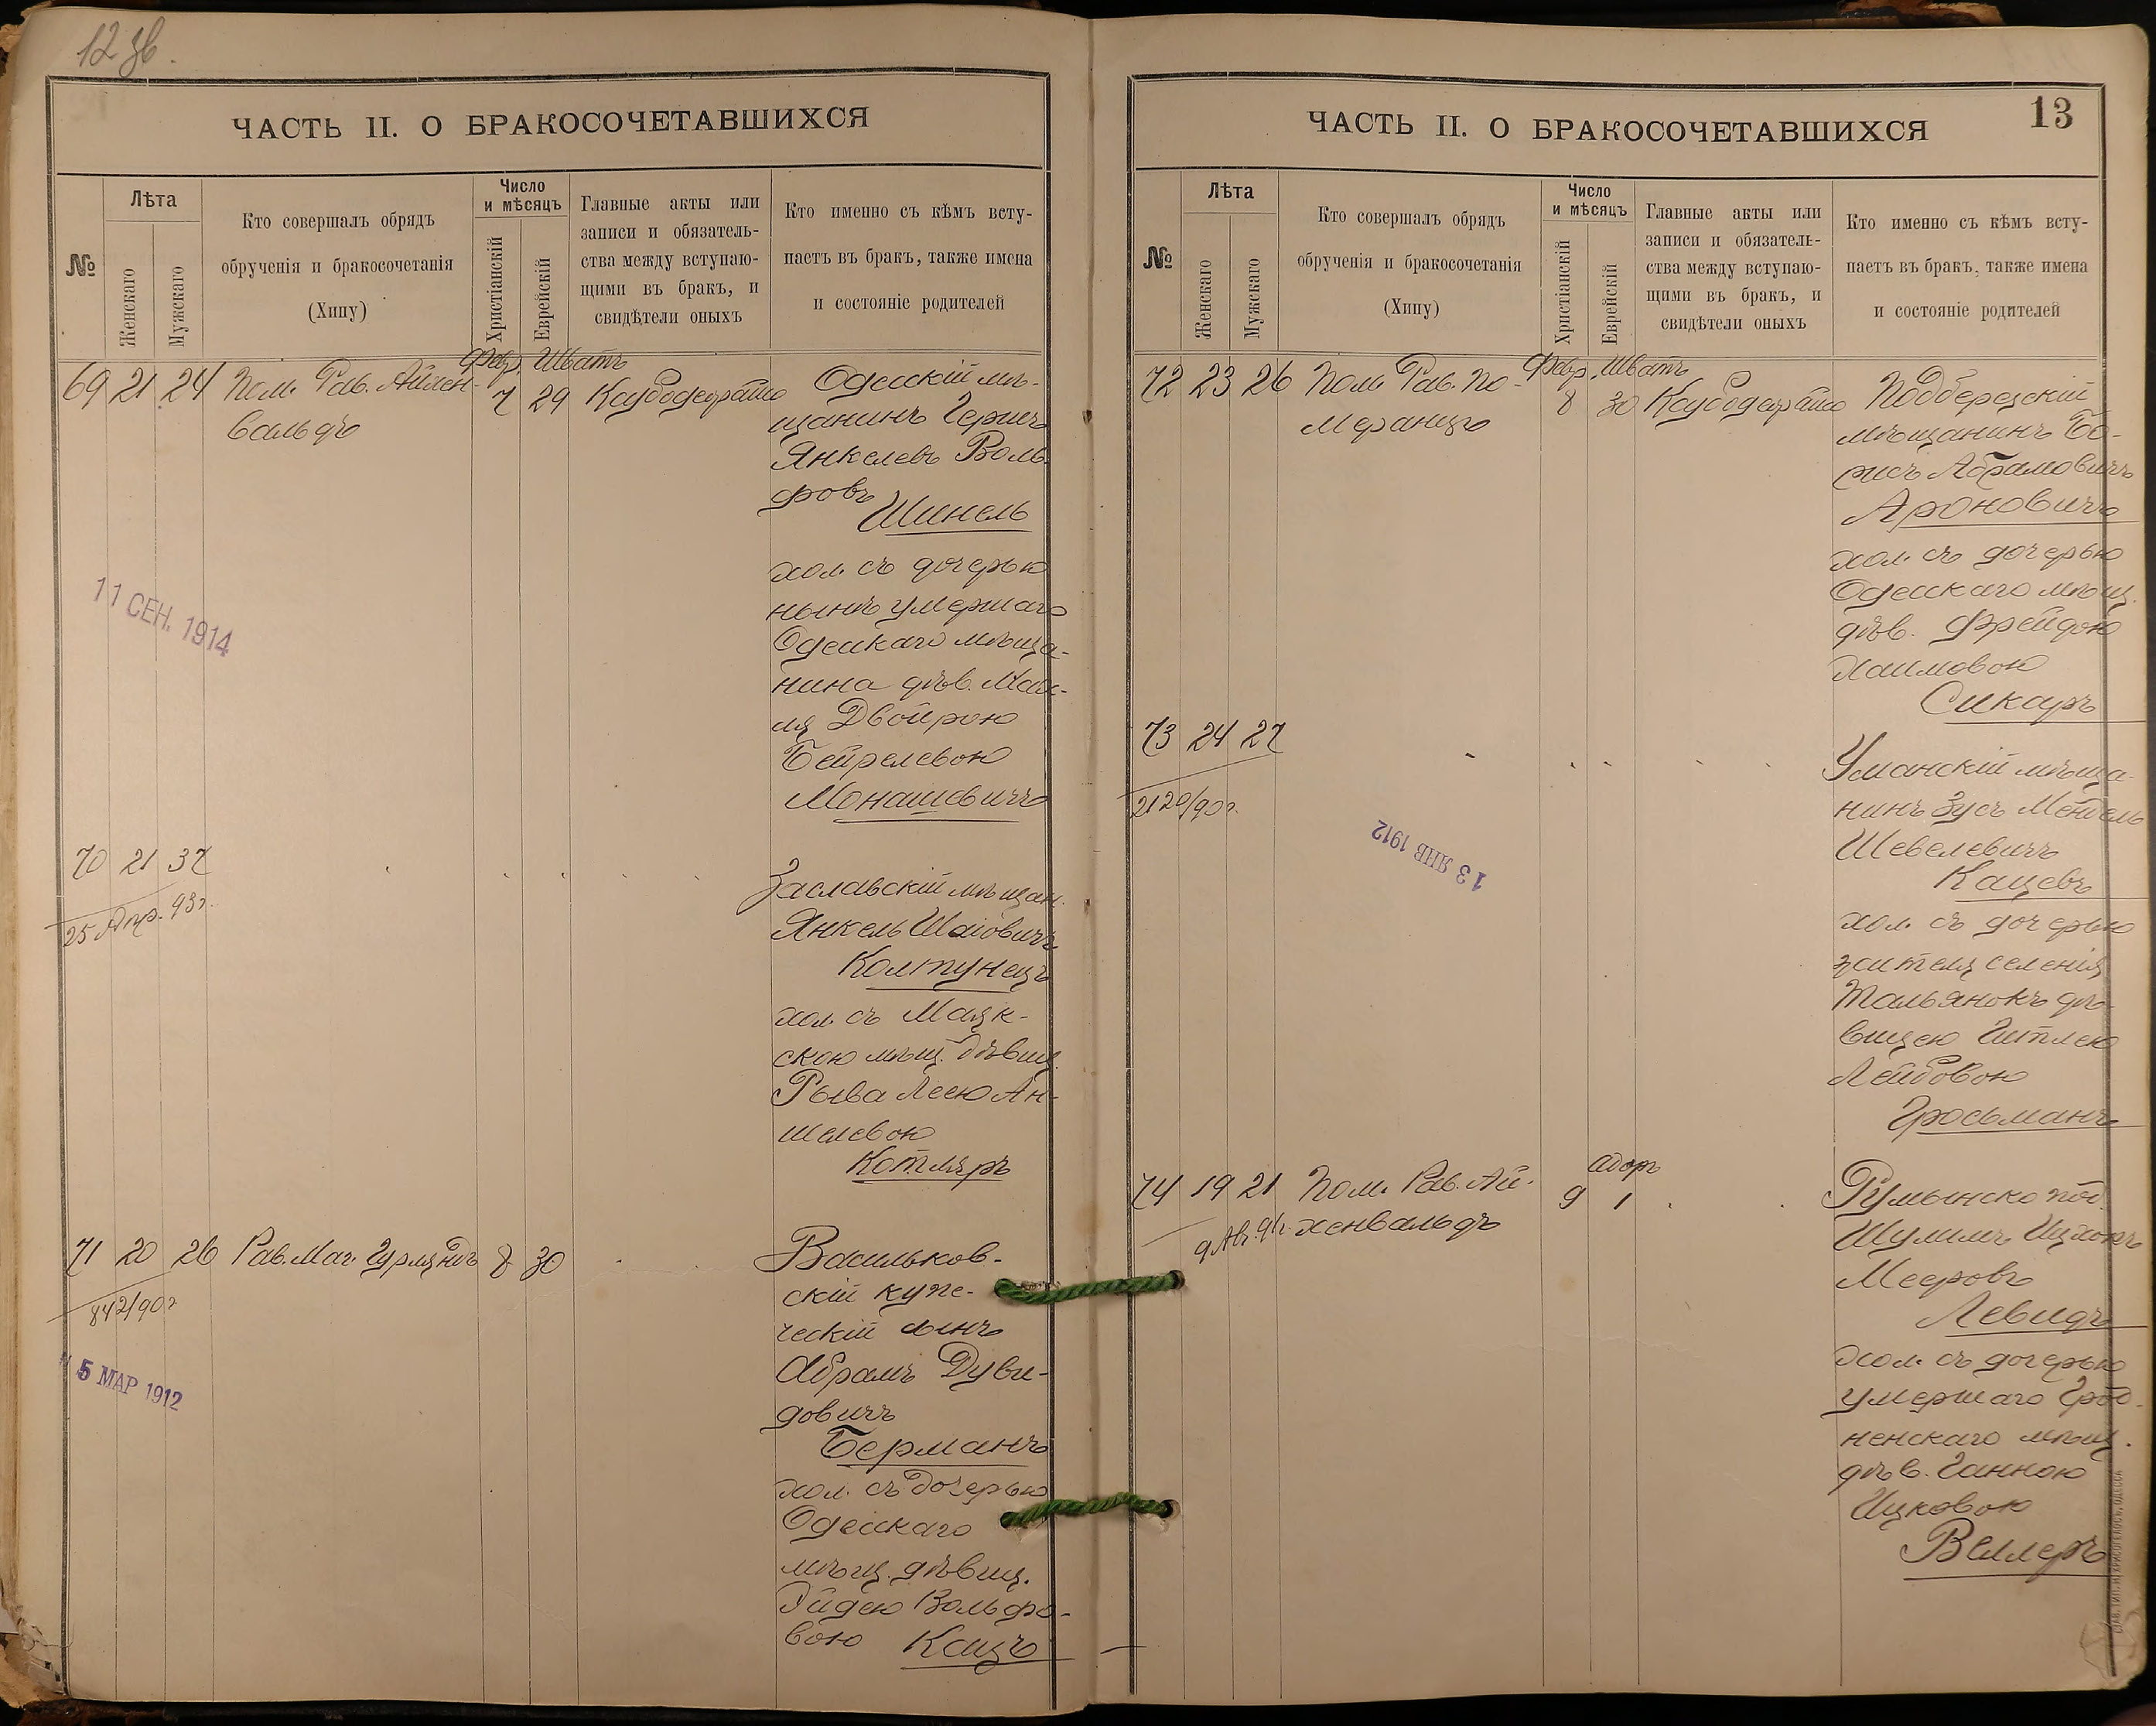 12 зв.
ЧАСТЬ II. О БРАКОСОЧЕТАВШИХСЯ
№
Лѣта
Женскаго
Мужскаго
Кто совершалъ обрядъ
обрученія и бракосочетанія
(Хипу)
Число
и мѣсяцъ
Христіанскій
Еврейскій
Главные акты или
записи и обязатель-
ства между вступаю-
щими въ бракъ, и
свидѣтели оныхъ
Кто именно съ кѣмъ всту-
паетъ въ бракъ, также имена
и состояніе родителей
Февр. Шватъ
69 21 24 Пом. Рав. Айхен-
вальдъ
7 29
Одесскій мѣ-
щанинъ Гершъ
Янкелевъ Воль-
фовъ
Шинель
хол. съ дочерью
нынѣ умершаго
Одесскаго мѣща-
нина дѣв. Мал-
ля Двойрою
Бейрелевою
Монашевичъ
11 СЕН. 1914
70 21 37
25 Апр. 93 г.
Заславскій мѣщан.
Янкель Шаіовичъ
Колтунецъ
хол. съ Маяк-
скою мѣщ. дѣвиц.
Рыва Леею Ан-
шелевою
Котляръ
71 20 26 Рав. Маг. Гурляндъ 8 30
842/90 г
5 МАР 1912
Васильков-
скій купе-
ческій сынъ
Абрамъ Дуви-
довичъ
Берманъ
хол. съ дочерью
Одесскаго
мѣщ. дѣвиц.
Эйдею Вольфо-
вою Кацъ
13
ЧАСТЬ II. О БРАКОСОЧЕТАВШИХСЯ
№
Лѣта
Женскаго
Мужскаго
Кто совершалъ обрядъ
обрученія и бракосочетанія
(Хипу)
Число
и мѣсяцъ
Христіанскій
Еврейскій
Главные акты или
записи и обязатель-
ства между вступаю-
щими въ бракъ, и
свидѣтели оныхъ
Кто именно съ кѣмъ всту-
паетъ въ бракъ, также имена
и состояніе родителей
Февр. Шватъ
72 23 26 Пом. Рав. По-
меранцъ
8 30
Подберезскій
мѣщанинъ Бо-
рисъ Абрамовичъ
Ароновичъ
хол. съ дочерью
Одесскаго мѣщ.
дѣв. Фрейдою
Хаимовою
Сикаръ
73 24 27
2120/90 г.
13 ЯНВ 1912
Уманскій мѣща-
нинъ Зусь Мендель
Шевелевичъ
Кацевъ
хол. съ дочерью
жителя селенія
Тальянокъ дѣ-
вицею Гитлею
Лейбовою
Гросьманъ
Адаръ
74 19 21 Пом. Рав. Ай-
хенвальдъ
9 1
Румынско под.
Шулимъ Ицхокъ
Мееровъ
Левидъ
хол. съ дочерью
умершаго Грод-
ненскаго мѣщ.
дѣв. Ганною
Ицковою
Веллеръ